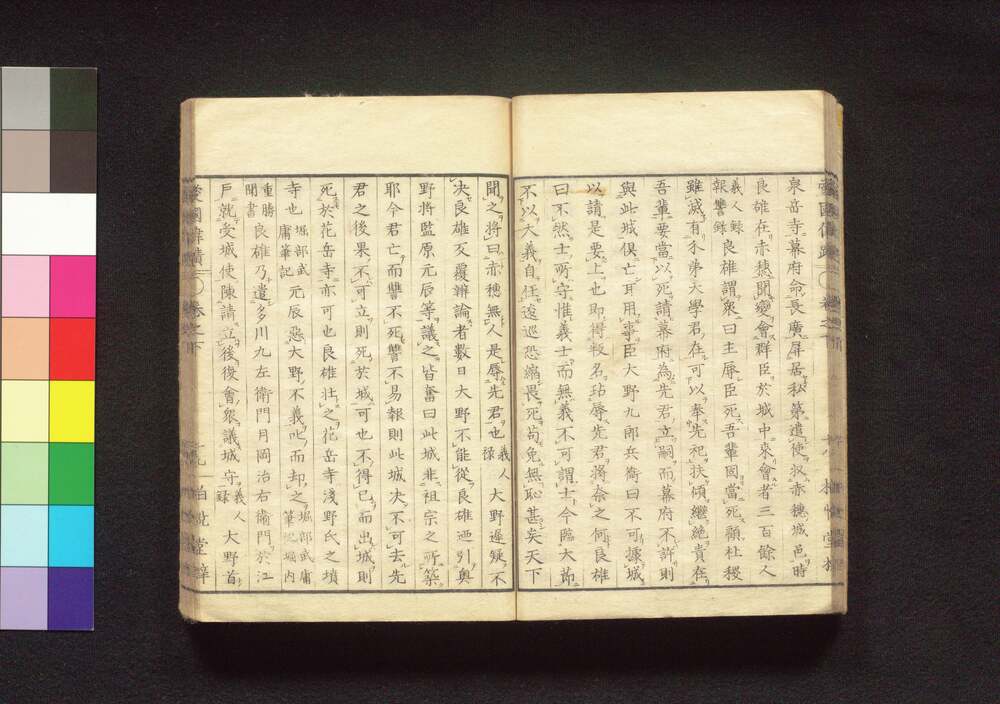 泉岳寺幕府命長廣屏居私第遣使收赤穗城邑時
良雄在赤穗聞變會群臣於城中來會者三百餘人
義人錄
報讐錄良雄謂衆曰主辱臣死吾輩固當死顧社稷
雖滅有介弟大學君在可以奉先祀扶傾繼絕貴在
吾輩要當以死請幕府為先君立嗣而幕府不許則
與此城俱亡耳用事臣大野九郎兵衛曰不可據城
以請是要上也即得叛名玷辱先君將奈之何良雄
曰不然士所守惟義士而無義不可謂士今臨大節
不以大義自任逡巡恐縮畏死苟免無恥甚矣天下
聞之將曰赤穗無人是辱先君也義人錄大野遲疑不
決良雄反覆辨論者數日大野不能從良雄迺引奧
野將監原元辰等議之皆奮曰此城非祖宗之所築
耶今君亡而讐不死讐不易報則此城决不可去先
君之後果不可立則死於城可也不得已而出城則
死於花岳寺亦可也良雄壯之花岳寺淺野氏之墳
寺也堀部武庸筆記元辰惡大野不義叱而却之堀部武庸筆記堀內
重勝聞書良雄乃遣多川九左衛門月岡治右衛門於江
戶就受城使陳請立後後會衆議城守義人錄大野首